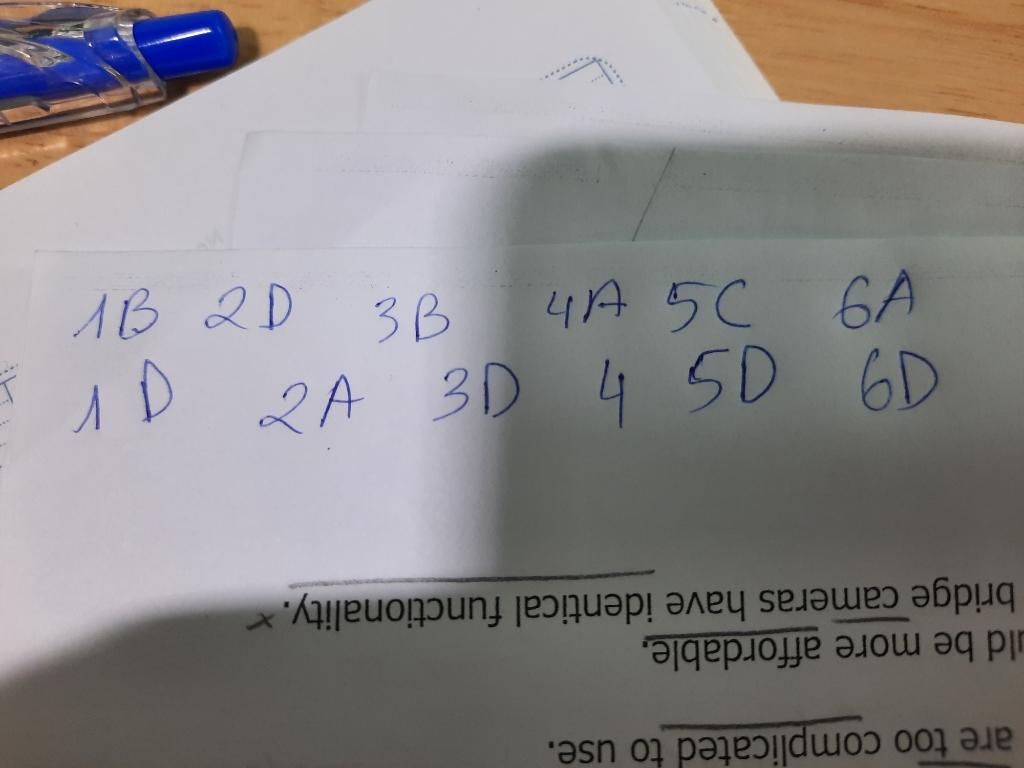 1B 2D 3B 4A 5C 6A
1D 2A 3D 4 5D 6D
are too complicated to use.
be more affordable.
bridge cameras have identical functionality. x